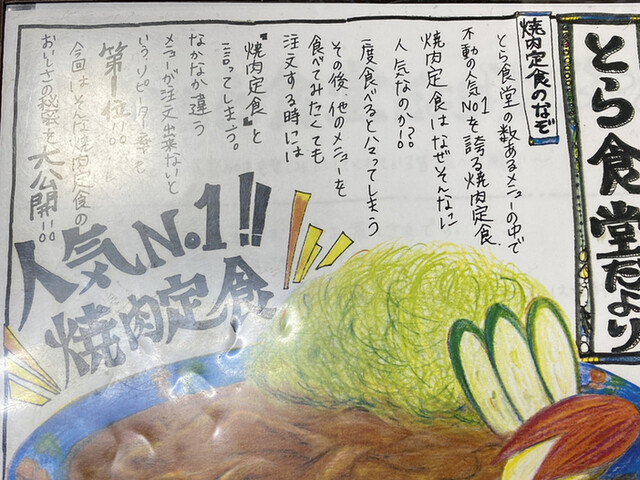 とら食堂だより
焼肉定食のなぞ
とら食堂の数あるメニューの中で
不動の人気No.1を誇る焼肉定食。
焼肉定食はなぜそんなに
人気なのか?!
一度食べるとハマってしまう
その後、他のメニューを
食べてみたくても
注文する時には
『焼肉定食』と
言ってしまう。
なかなか違う
メニューが注文出来ないと
いう、リピーター率も
第1位!!
今回はそんな焼肉定食の
おいしさの秘密を大公開!!
人気No.1!!
焼肉定食